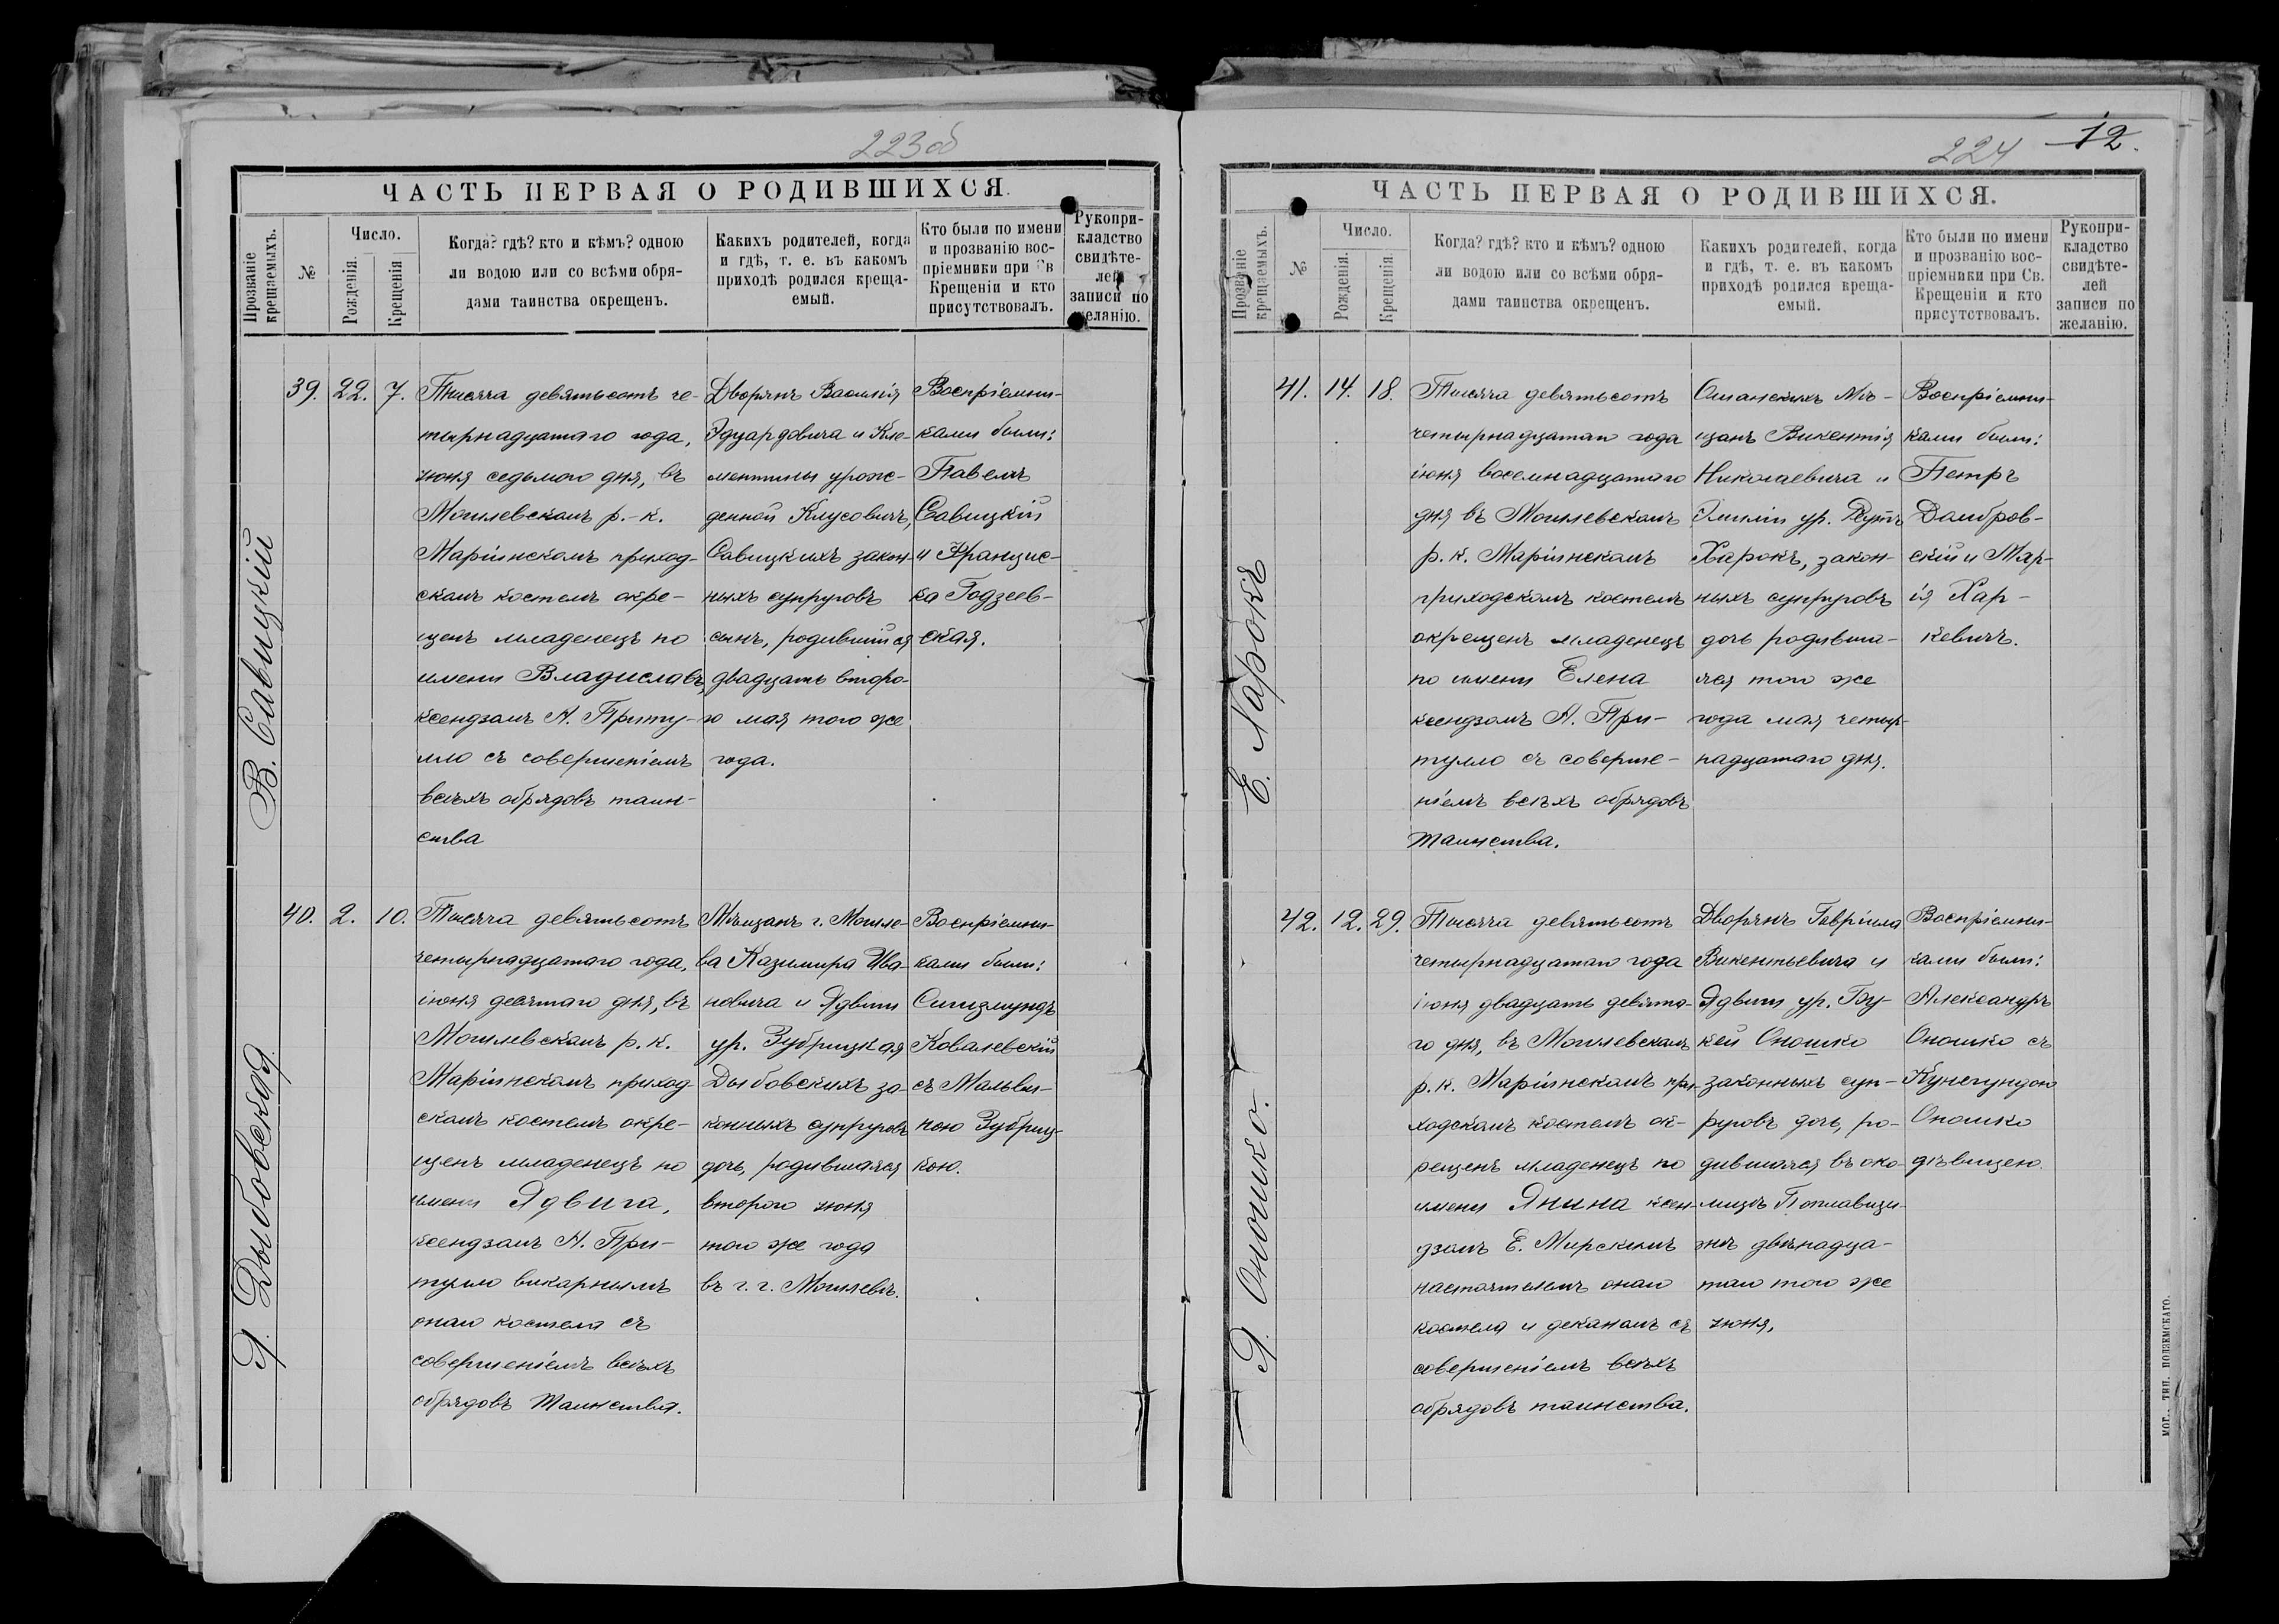 223об
ЧАСТЬ ПЕРВАЯ О РОДИВШИХСЯ.
Прозваніе крещаемыхъ.
№
Число.
Рожденія.
Крещенія
Когда? гдѣ? кто и кѣмъ? одною
ли водою или со всѣми обря-
дами таинства окрещенъ.
Какихъ родителей, когда
и гдѣ, т. е. въ какомъ
приходѣ родился креща-
емый.
Кто были по имени
и прозванію вос-
пріемники при Св
Крещеніи и кто
присутствовалъ.
Рукопри-
кладство
свидѣте-
лей
записи по
желанію.
В. Савицкій
39. 22. 7.
Тысяча девятьсотъ че-
тырнадцатаго года,
июня седьмого дня, въ
Могилевскомъ р.-к.
Маріинскомъ приход-
скомъ костелѣ окре-
щенъ младенецъ по
имени Владиславъ,
ксендзомъ А. Приту-
лло съ совершеніемъ
всѣхъ обрядовъ таин-
ства
Дворянъ Василія
Эдуардовича и Кле-
ментины урож-
денной Клусовичъ,
Савицкихъ закон-
ныхъ супруговъ
сынъ, родившійся
двадцать второ-
го мая того же
года.
Воспріемни-
ками были:
Павелъ
Савицкій
и Францис-
ка Годзеев-
ская.
Я. Дыбовская.
40. 2. 10.
Тысяча девятьсотъ
четырнадцатаго года,
іюня девятаго дня, въ
Могилевскомъ р. к.
Маріинскомъ приход-
скомъ костелѣ окре-
щенъ младенецъ по
имени Ядвига,
ксендзомъ А. При-
тулло викарнымъ
онаго костела съ
совершеніемъ всѣхъ
обрядовъ Таинства.
Мѣщанъ г. Могиле-
ва Казимира Ива-
новича и Ядвиги
ур. Зубрицкая
Дыбовскихъ за-
конныхъ супруговъ
дочь, родившаяся
второго июня
того же года
въ г. г. Могилевѣ.
Воспріемни-
ками были:
Сигизмундъ
Ковалевскій
съ Мальви-
ною Зубриц-
кою.
224
12.
ЧАСТЬ ПЕРВАЯ О РОДИВШИХСЯ.
Прозваніе крещаемыхъ.
№
Число.
Рожденія.
Крещенія.
Когда? гдѣ? кто и кѣмъ? одною
ли водою или со всѣми обря-
дами таинства окрещенъ.
Какихъ родителей, когда
и гдѣ, т. е. въ какомъ
приходѣ родился креща-
емый.
Кто были по имени
и прозванію вос-
пріемники при Св.
Крещеніи и кто
присутствовалъ.
Рукопри-
кладство
свидѣте-
лей
записи по
желанію.
Е. Харокъ
41. 14. 18.
Тысяча девятьсотъ
четырнадцатаго года
іюня восемнадцатаго
дня въ Могилевскомъ
р. к. Маріинскомъ
приходскомъ костелѣ
окрещенъ младенецъ
по имени Елена
ксендзомъ А. При-
тулло съ соверше-
ніемъ всѣхъ обрядовъ
Таинства.
Ошанскихъ Мѣ-
щанъ Викентія
Николаевича и
Эмиліи ур.
Харокъ, закон-
ныхъ супруговъ
дочь родивша-
яся того же
года мая четыр-
надцатаго дня.
Воспріемни-
ками были:
Петръ
Домбров-
скій и Мар-
ія Хар-
кевичъ.
Я. Оношко.
42. 12. 29.
Тысяча девятьсотъ
четырнадцатаго года
іюня двадцать девята-
го дня, въ Могилевскомъ
р. к. Маріинскомъ при-
ходскомъ костелѣ ок-
рещенъ младенецъ по
имени Янина ксен-
дзомъ Е. Мирскимъ
настоятелемъ онаго
костела и деканомъ съ
совершеніемъ всѣхъ
обрядовъ таинства.
Дворянъ Гавріила
Викентьевича и
Ядвиги ур. Бу-
кей Оношко
законныхъ суп-
руговъ дочь, ро-
дившаяся въ око-
лицѣ
двѣнадца-
таго того же
июня,
Воспріемни-
ками были:
Александръ
Оношко съ
Кунегундою
Оношко
дѣвицею.
МОГ., ТИП. ПОДЗЕМСКАГО.